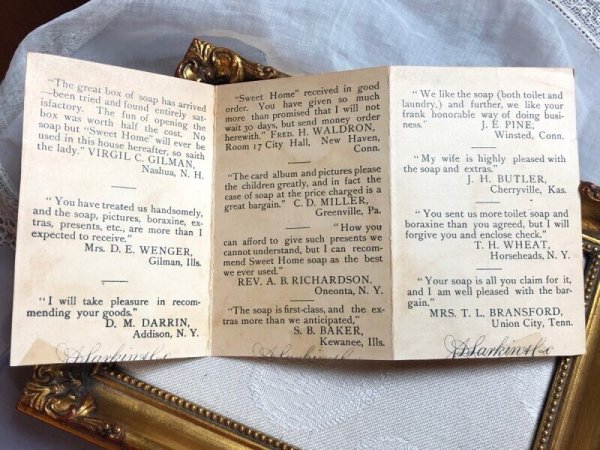 "The great box of soap has arrived
—been tried and found entirely sat-
isfactory. The fun of opening the
box was worth half the cost. No
soap but "Sweet Home" will ever be
used in this house hereafter, so saith
the lady." VIRGIL C. GILMAN,
Nashua, N. H.
"You have treated us handsomely,
and the soap, pictures, boraxine, ex-
tras, presents, etc., are more than I
expected to receive."
Mrs. D. E. WENGER,
Gilman, Ills.
"I will take pleasure in recom-
mending your goods."
D. M. DARRIN,
Addison, N. Y.
J.D. Larkin & Co
"Sweet Home" received in good
order. You have given so much
more than promised that I will not
wait 30 days, but send money order
herewith." FRED. H. WALDRON,
Room 17 City Hall, New Haven,
Conn.
"The card album and pictures please
the children greatly, and in fact the
case of soap at the price charged is a
great bargain." C. D. MILLER,
Greenville, Pa.
"How you
can afford to give such presents we
cannot understand, but I can recom-
mend Sweet Home soap as the best
we ever used."
REV. A. B. RICHARDSON.
Oneonta, N. Y.
"The soap is first-class, and the ex-
tras more than we anticipated,"
S. B. BAKER,
Kewanee, Ills.
J.D. Larkin & Co
"We like the soap (both toilet and
laundry,) and further, we like your
frank honorable way of doing busi-
ness." J. E. PINE,
Winsted, Conn.
"My wife is highly pleased with
the soap and extras."
J. H. BUTLER,
Cherryville, Kas.
"You sent us more toilet soap and
boraxine than you agreed, but I will
forgive you and enclose check."
T. H. WHEAT,
Horseheads, N. Y.
"Your soap is all you claim for it,
and I am well pleased with the bar-
gain."
MRS. T. L. BRANSFORD,
Union City, Tenn.
J.D. Larkin & Co